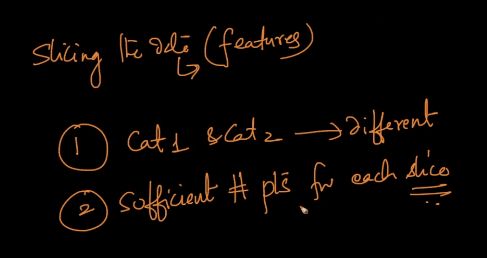 Slicing the data (features)
1 Cat1 & Cat2 → different
2 Sufficient # pts for each slice